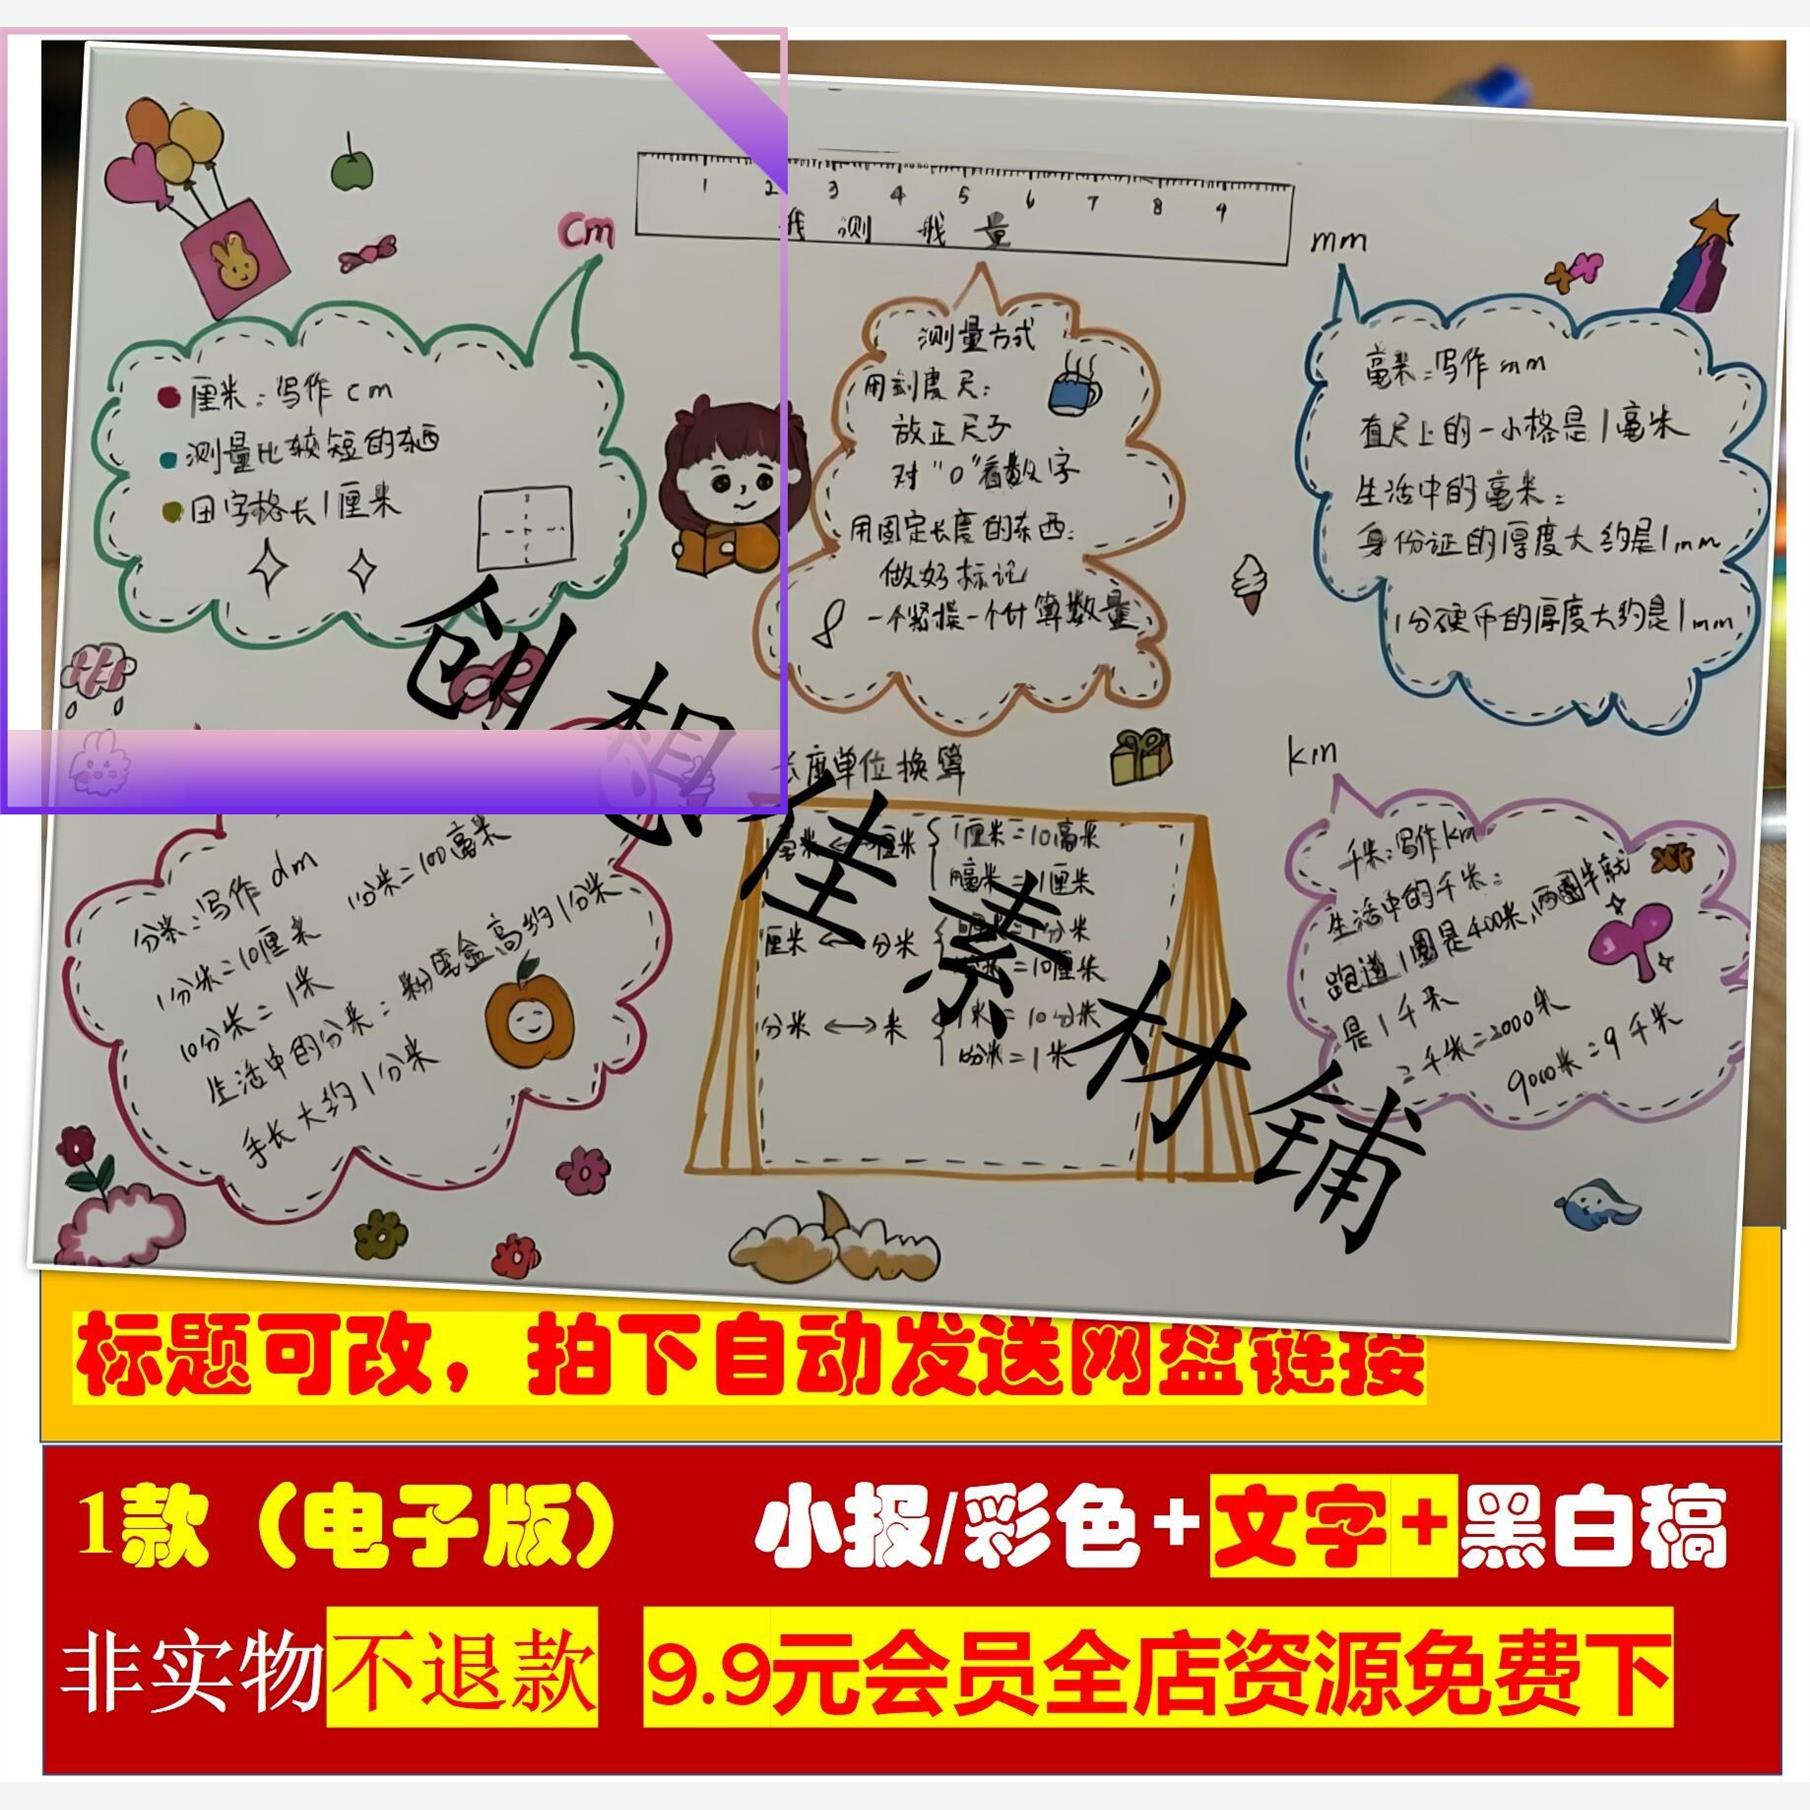 1 2 3 4 5 6 7 8 9
我测 我量
cm
厘米：写作cm
测量比较短的东西
田字格长1厘米
测量方式
用刻度尺：
放正尺子
对“0”看数字
用固定长度的东西：
做好标记
一个紧挨一个计算数量
mm
毫米：写作mm
直尺上的一小格是1毫米
生活中的毫米：
身份证的厚度大约是1mm
1分硬币的厚度大约是1mm
分米：写作dm
1分米=10厘米 1分米=100毫米
10分米=1米
生活中的分米：粉笔盒高约1分米
手长大约1分米
长度单位换算
毫米↔厘米 1厘米=10毫米
10毫米=1厘米
厘米↔分米 =1分米
=10厘米
分米↔米 1米=10分米
10分米=1米
km
千米：写作km
生活中的千米：
跑道1圈是400米，两圈半就
是1千米
2千米=2000米
9000米=9千米
创想佳素材铺
标题可改，拍下自动发送网盘链接
1款（电子版） 小报/彩色+文字+黑白稿
非实物不退款 9.9元会员全店资源免费下